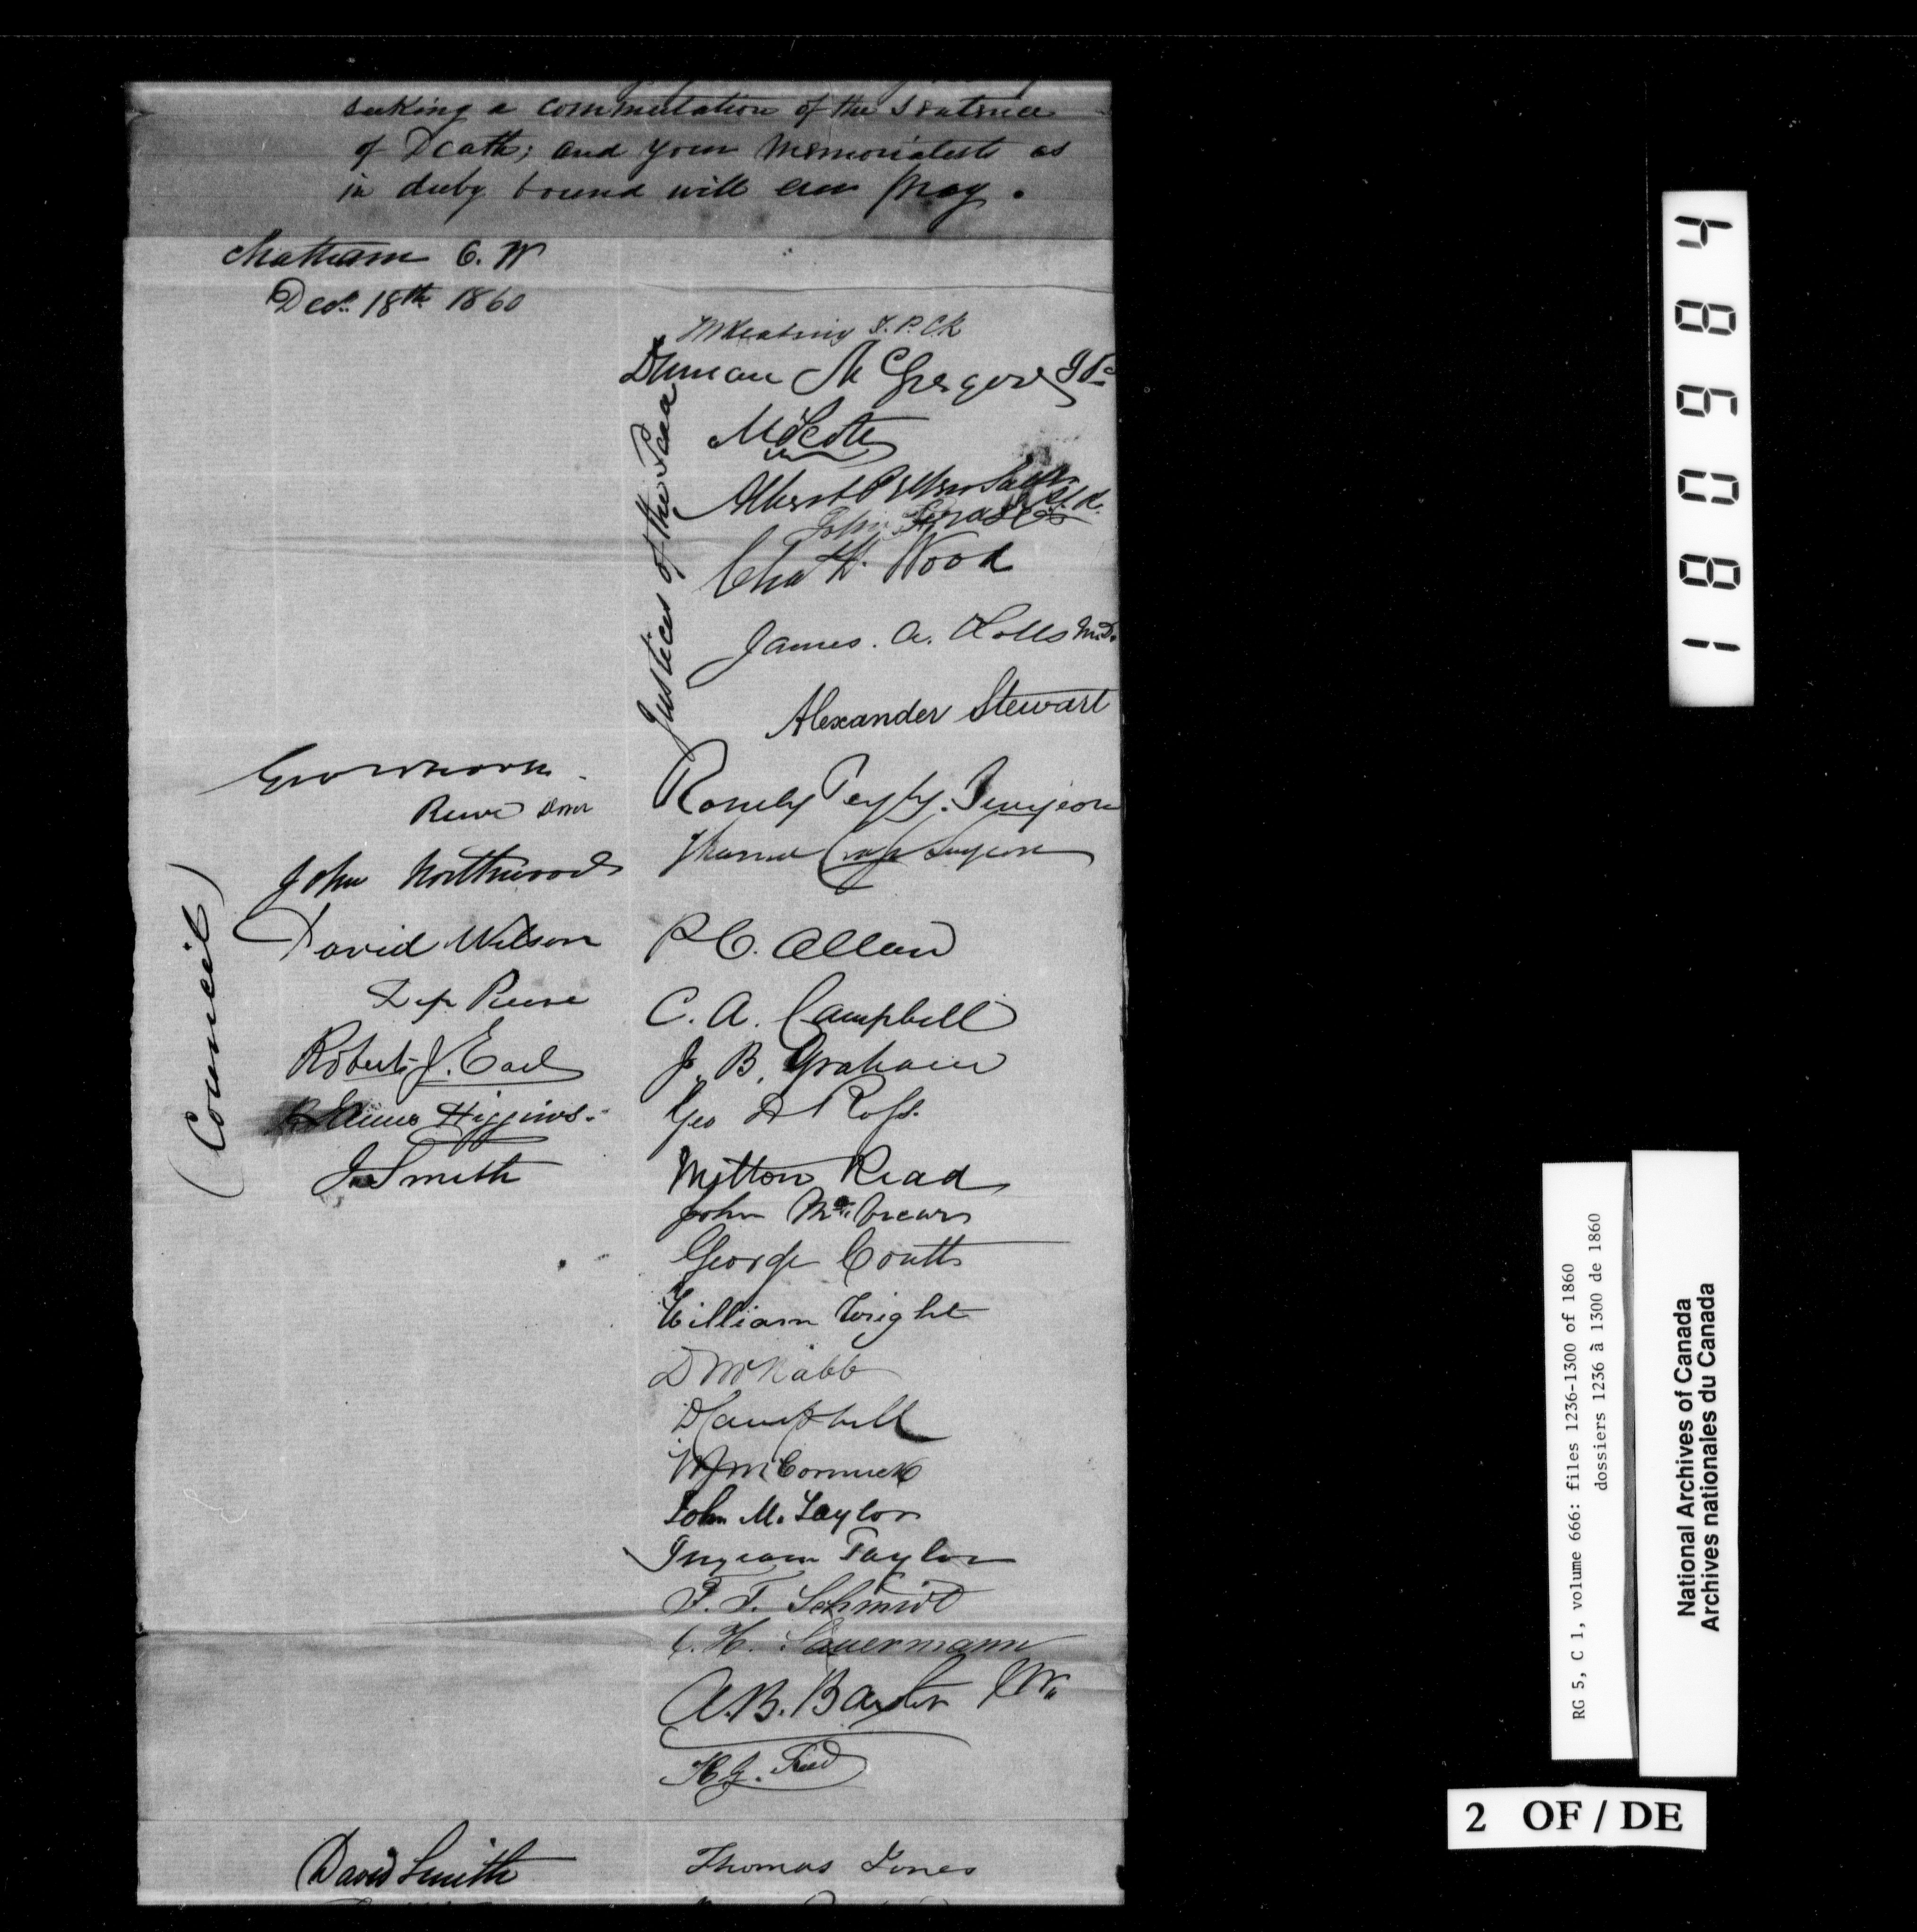 seeking a commutation of the Sentence
of Death; and your Memorialists as
in duty bound will ever pray.
Chatham C. W
Dec. 18th 1860
Justices of the Peace
Duncan McGregor J P
John
Chas H. Wood
James. A. M.D.
Alexander Stewart
Surgeon
Thomas Cross Surgeon
(Council)
Reeve
John Northwood
David Wilson
Dep Reeve
Robert J. Earl
James Higgins.
J Smith
P C. Allan
C. A. Campbell
J. B. Graham
Geo Ross.
Mitton Read
John
George Coutts
William Wright
D McNabb
D Campbell
W McCormick
John M. Taylor
Ingram Taylor
F. F. Schmidt
C. H. Sauermann
A. B. Baxter
David Smith
Thomas Jones
180984
RG 5, C 1, volume 666: files 1236-1300 of 1860
dossiers 1236 à 1300 de 1860
National Archives of Canada
Archives nationales du Canada
2 OF / DE